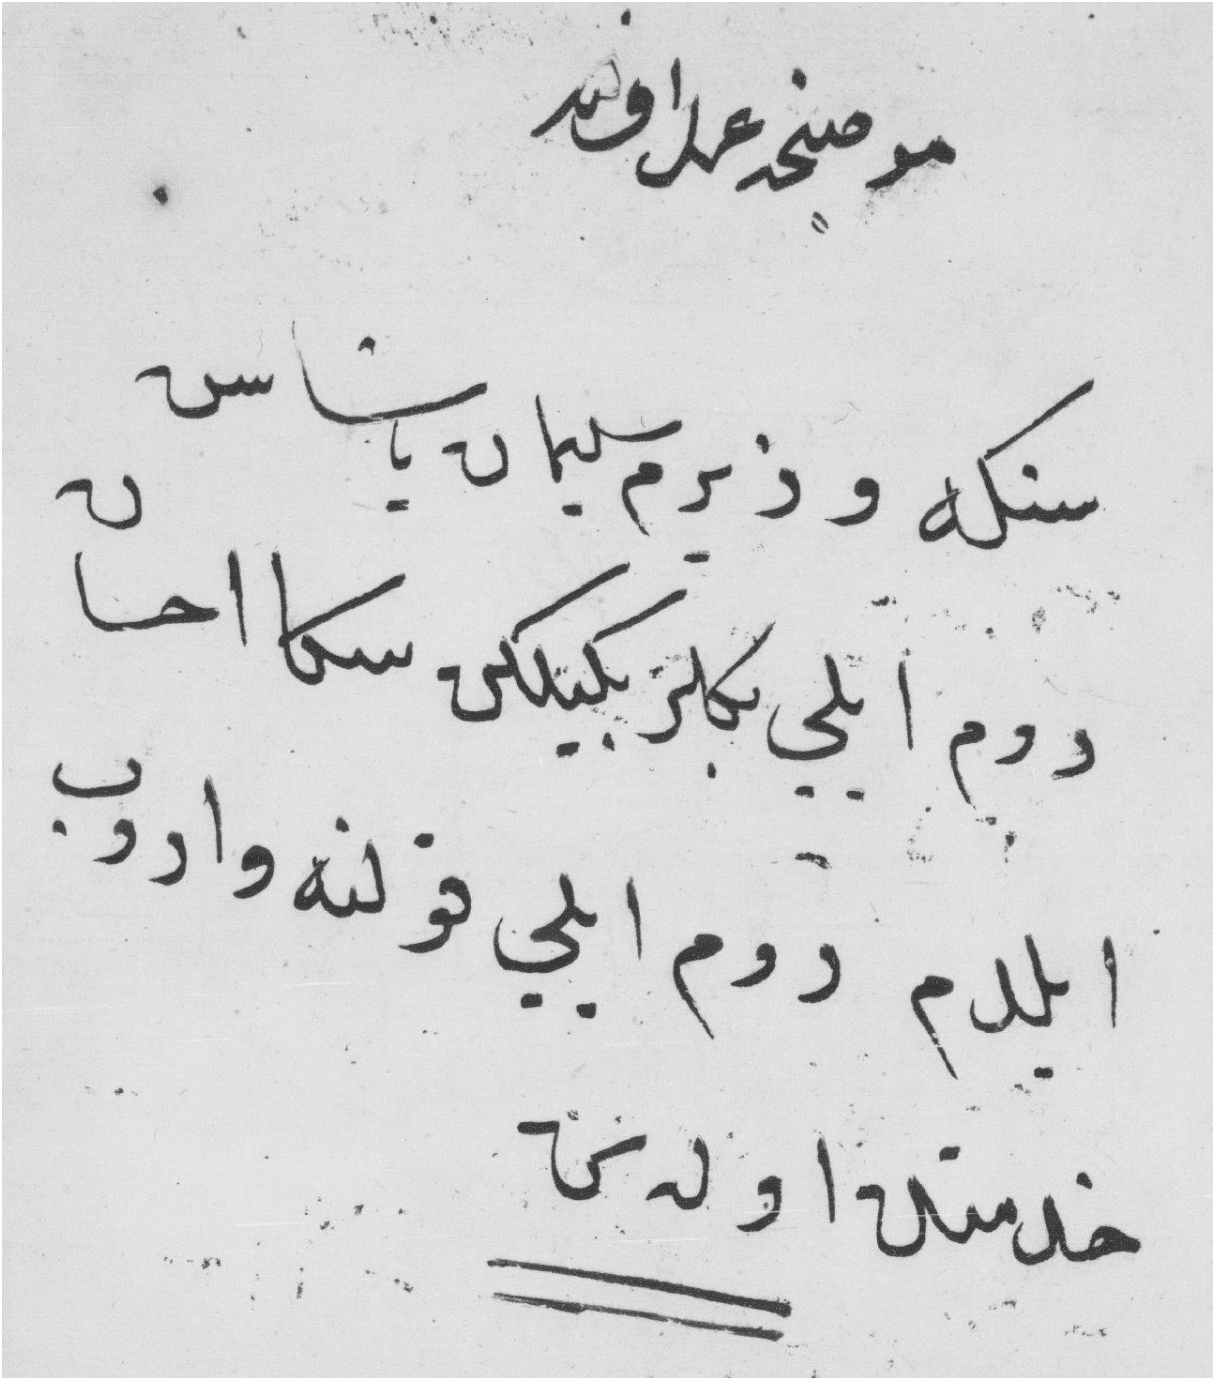 موجبنجه عمل اولنه
سنكه وزيرم سليمان پاشاسن
روم ايلي بكلربكيلكن سكا احسان
ايلدم روم ايلي قولنه واروب
خدمتده اولهسن